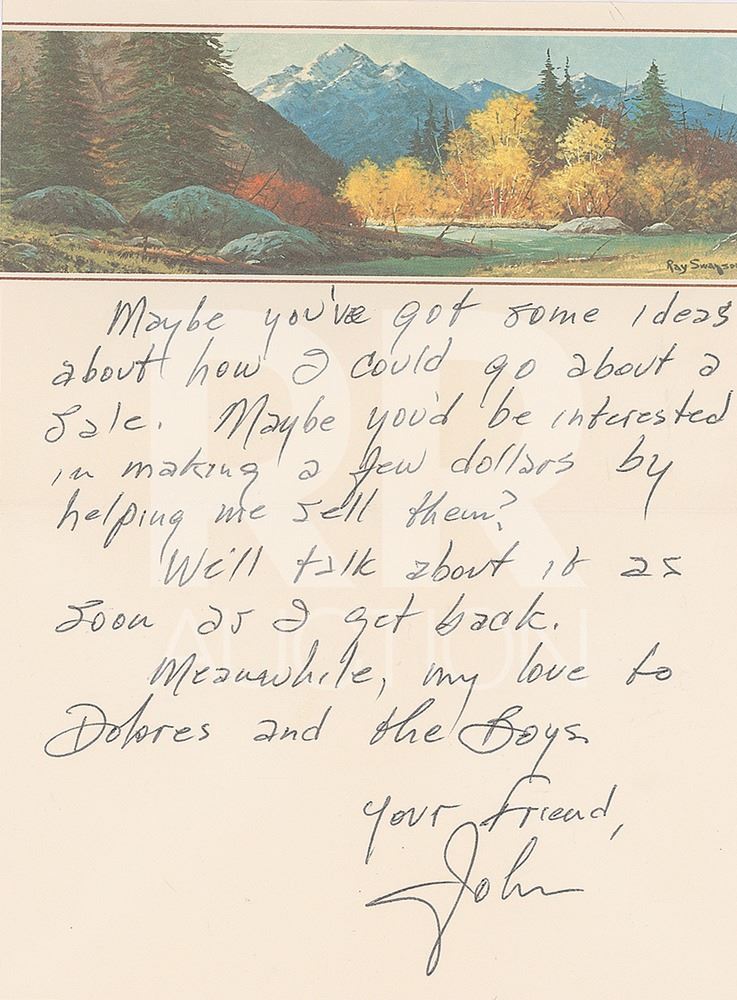 Ray Swanson
Maybe you've got some ideas
about how I could go about a
sale. Maybe you'd be interested
in making a few dollars by
helping me sell them?
We'll talk about it as
soon as I get back.
Meanwhile, my love to
Dolores and the Boys.
Your friend,
John
RR
AUCTION